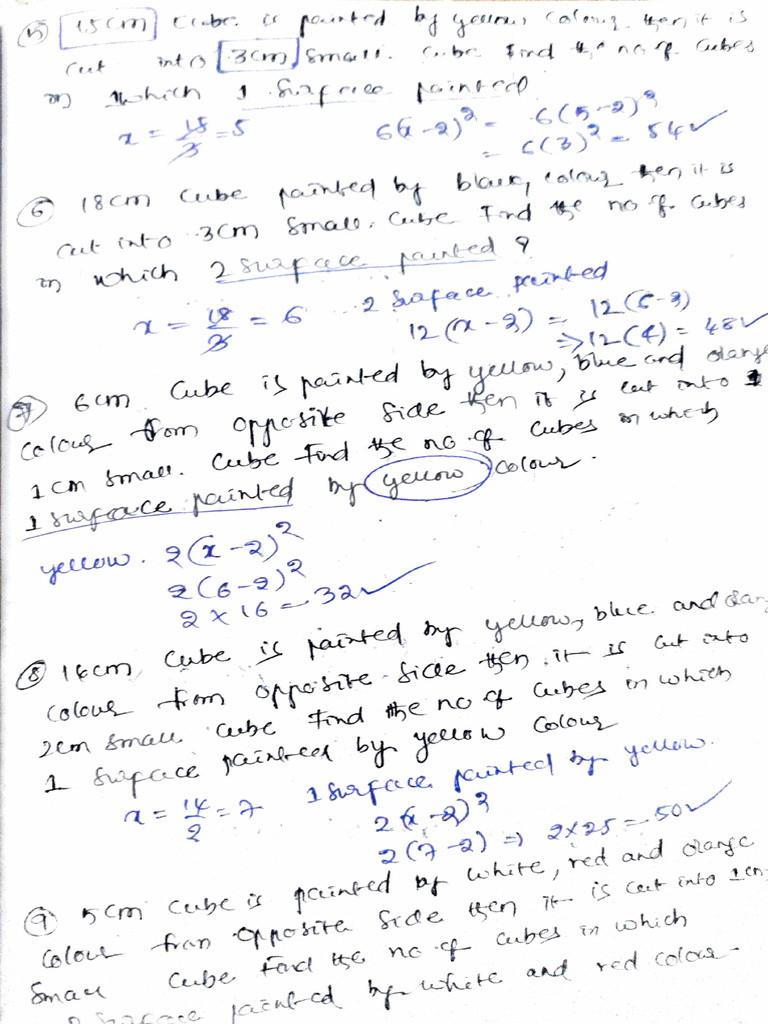 ⑤ 15cm Cube is painted by yellow colour then it is
cut into 3cm small. Cube find the no of cubes
in which 1 surface painted
x = 15/3 = 5   6(x-2)² = 6(5-2)²
= 6(3)² = 54 ✓
⑥ 18cm Cube painted by black colour then it is
cut into 3cm small. Cube Find the no of cubes
in which 2 surface painted ?
x = 18/3 = 6   2 surface painted
12(x-2) = 12(6-2)
⇒ 12(4) = 48 ✓
⑦ 6cm Cube is painted by yellow, blue and orange
colour from opposite side then it is cut into
1cm small. Cube find the no of cubes in which
1 surface painted by yellow colour.
yellow. 2(x-2)²
2(6-2)²
2 × 16 = 32 ✓
⑧ 14cm cube is painted by yellow, blue and oran
colour from opposite side then it is cut into
2cm small cube Find the no of cubes in which
1 surface painted by yellow colour
x = 14/2 = 7   1 surface painted by yellow.
2(x-2)²
2(7-2) ⇒ 2×25 = 50 ✓
⑨ 5cm cube is painted by white, red and orange
colour from opposite side then it is cut into 1cm
small cube find the no of cubes in which
2 surface painted by white and red colour.